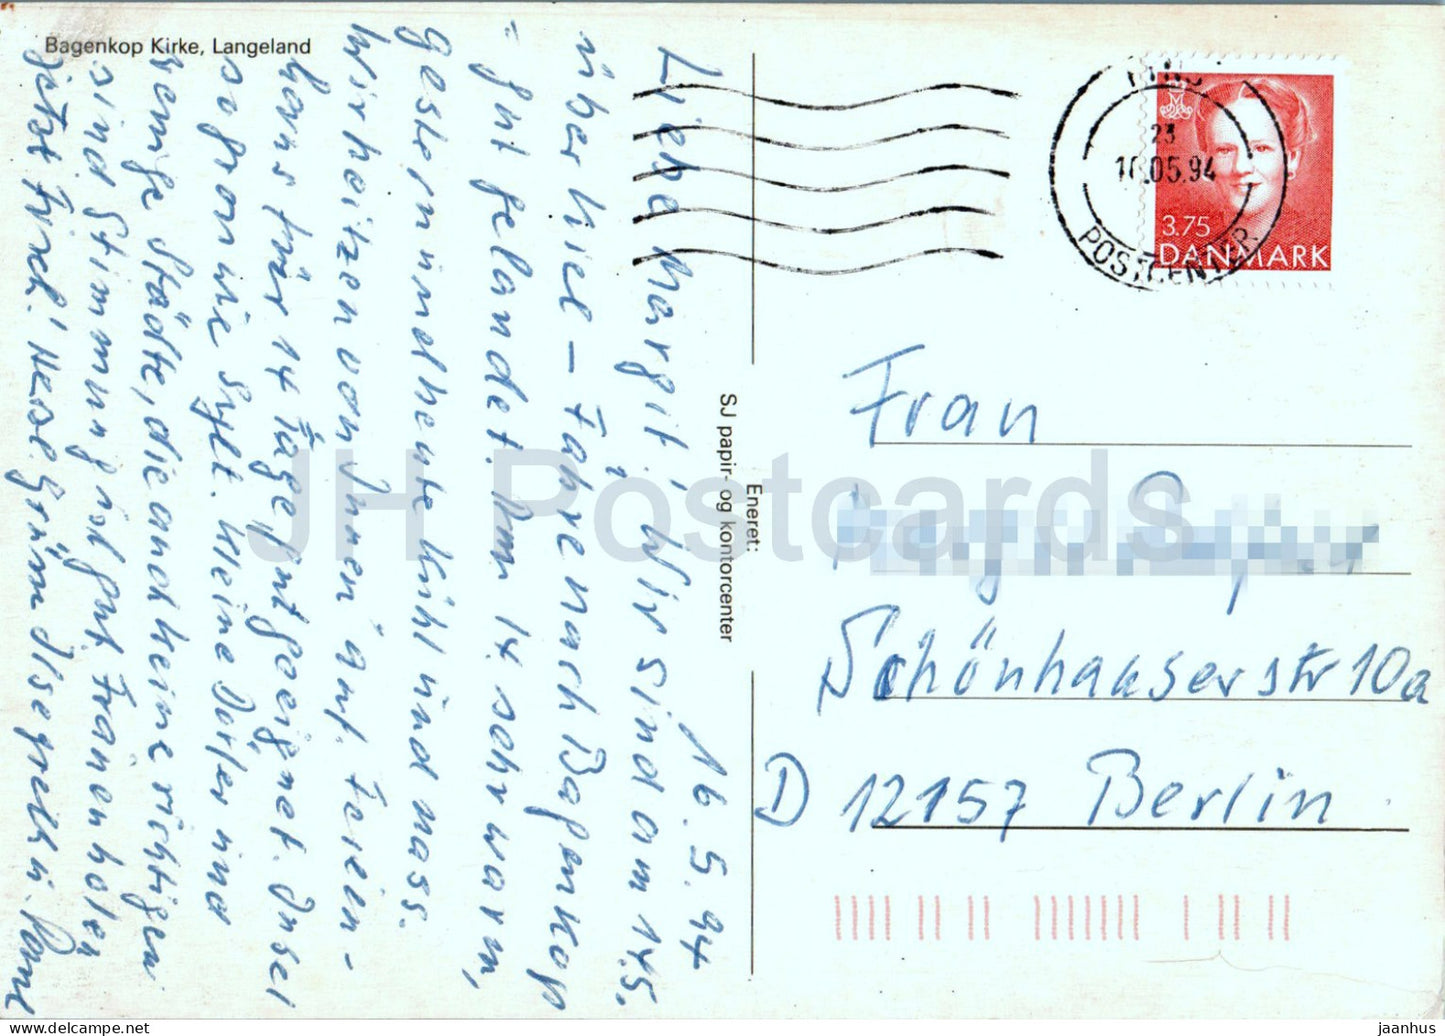 Bagenkop Kirke, Langeland
16.5.94
Liebe Margit! Wir sind am 14.5.
über Kiel – Fähre nach Bagenkop
– gut gelandet. Am 14. sehr warm,
gestern und heute kühl und nass.
Wir heitzen von Innen auf. Ferien-
haus für 14 Tage gut geeignet. Insel
so grou wie Sylt. Kleine Dörfer und
wenige Städte, die auch keine richtigen
sind. Stimmung ist gut. Frauen holen
jetzt Fisch! Herzl. Grüße Ilsegret u.
Eneret:
SJ papir- og kontorcenter
23
05.94
POSTCENTER
3.75
DANMARK
Frau
Schönhauserstr 10a
D 12157 Berlin
JH Postcards
jaanhus
delcampe.net